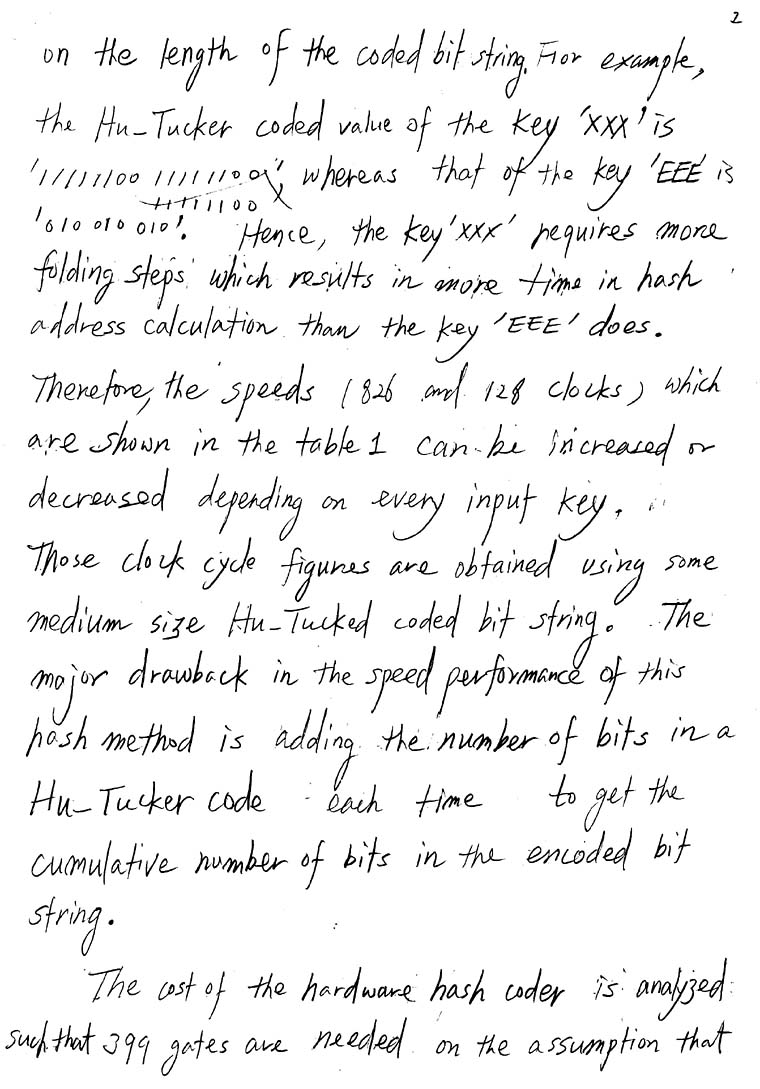 2
on the length of the coded bit string. For example,
the Hu-Tucker coded value of the key 'XXX' is
'11111100 11111100
11111100', whereas that of the key 'EEE' is
'010 010 010'. Hence, the key 'XXX' requires more
folding steps which results in more time in hash
address calculation than the key 'EEE' does.
Therefore, the speeds (826 and 128 clocks) which
are shown in the table 1 can be increased or
decreased depending on every input key.
Those clock cycle figures are obtained using some
medium size Hu-Tucked coded bit string. The
major drawback in the speed performance of this
hash method is adding the number of bits in a
Hu-Tucker code each time to get the
cumulative number of bits in the encoded bit
string.
The cost of the hardware hash coder is analyzed
such that 399 gates are needed on the assumption that